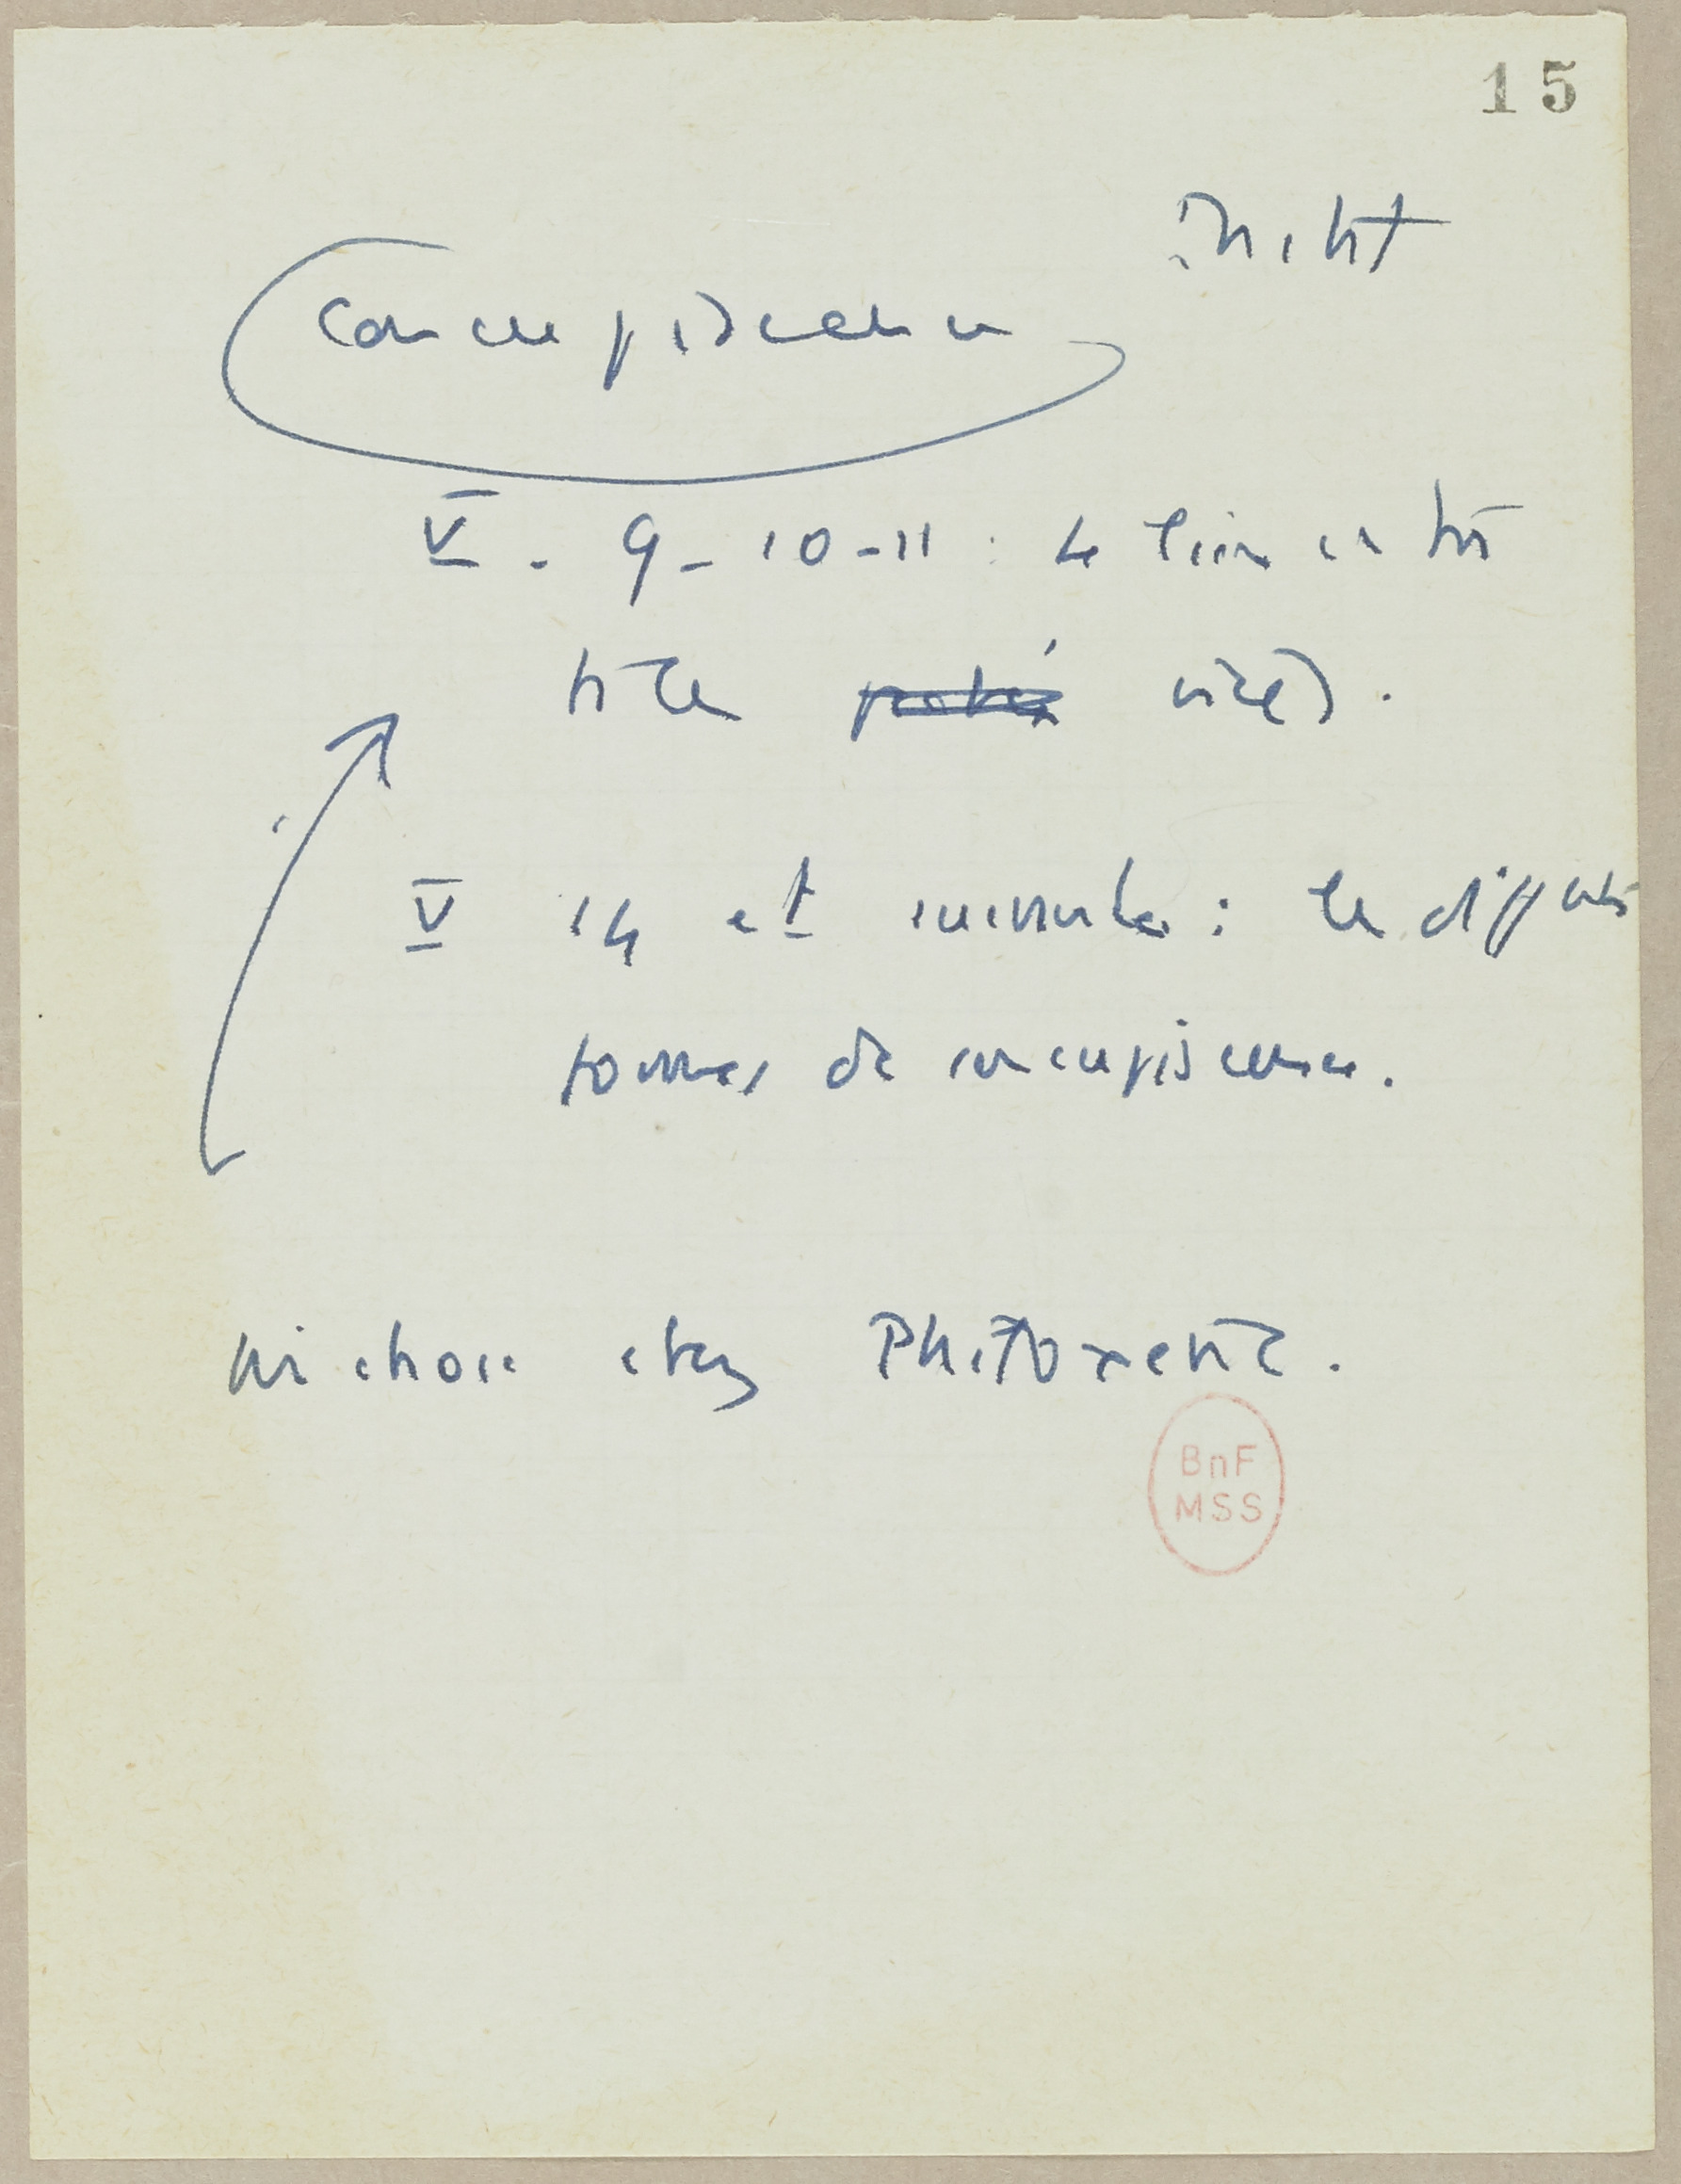 15
Instit
Concupiscence
V. 9-10-11 : le lien entre
tous les vices.
V 14 et suivantes : les différentes
formes de concupiscence.
chose chez Philoxène.
BnF
MSS